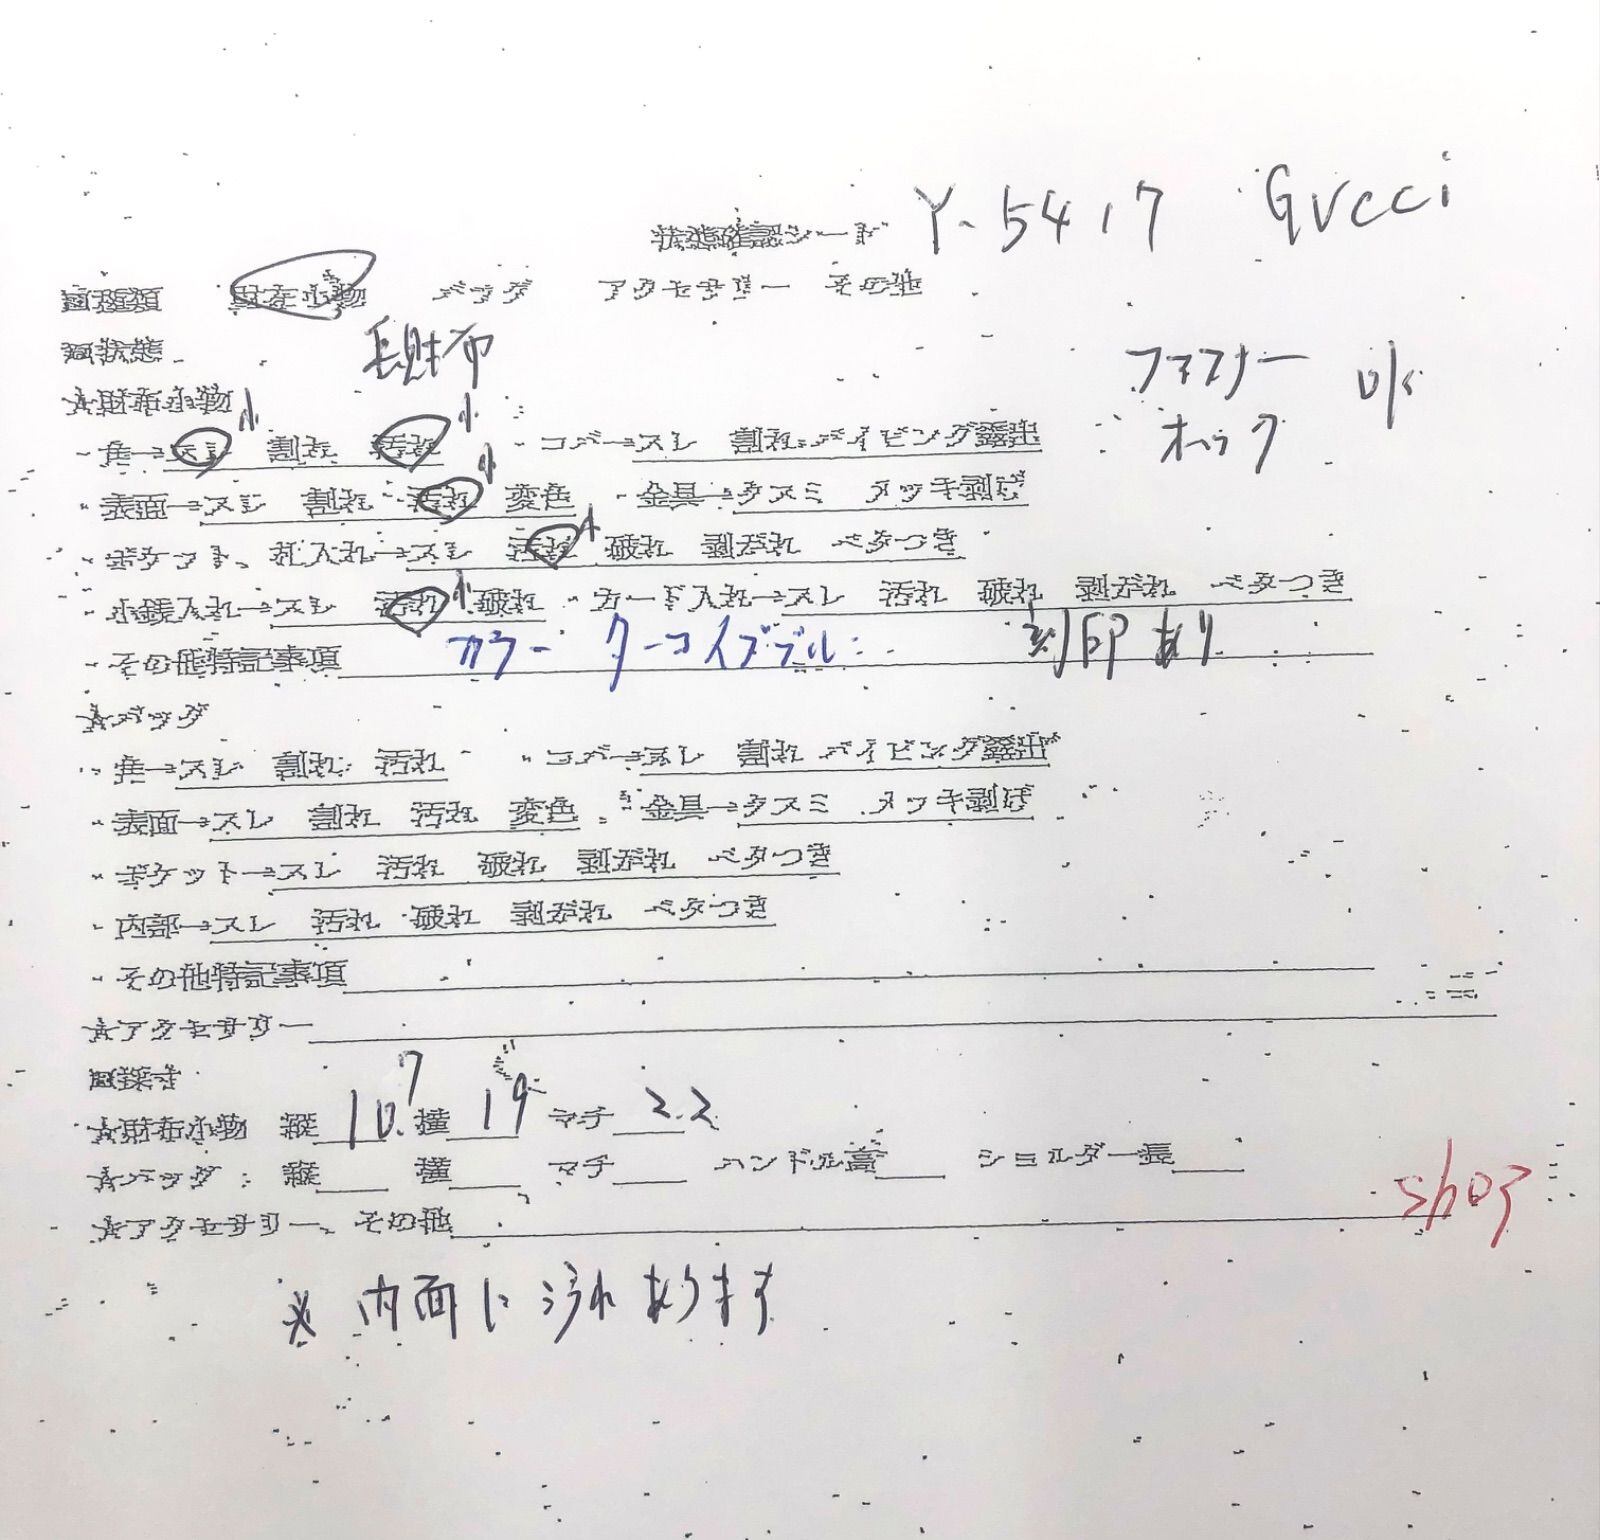 状態確認シート Y-5417 Gucci
□種類 財布小物 バッグ アクセサリー その他
□状態 長財布 ファスナー ok
☆財布小物 ホック
・角→スレ 小 割れ 汚れ 小 ・コバ→スレ 割れ パイピング露出
・表面→スレ 割れ 汚れ 小 変色 ・金具→クスミ メッキ剥げ
・ポケット、札入れ→スレ 汚れ 小 破れ 剥がれ ベタつき
・小銭入れ→スレ 汚れ 小 破れ ・カード入れ→スレ 汚れ 破れ 剥がれ ベタつき
・その他特記事項 カラー ターコイズブルー 刻印あり
☆バッグ
・角→スレ 割れ 汚れ ・コバ→スレ 割れ パイピング露出
・表面→スレ 割れ 汚れ 変色 ・金具→クスミ メッキ剥げ
・ポケット→スレ 汚れ 破れ 剥がれ ベタつき
・内部→スレ 汚れ 破れ 剥がれ ベタつき
・その他特記事項
☆アクセサリー
□採寸
☆財布小物 縦 10.7 横 19 マチ 2.2
☆バッグ: 縦 横 マチ ハンドル高 ショルダー長
☆アクセサリー、その他
※内面に汚れあります